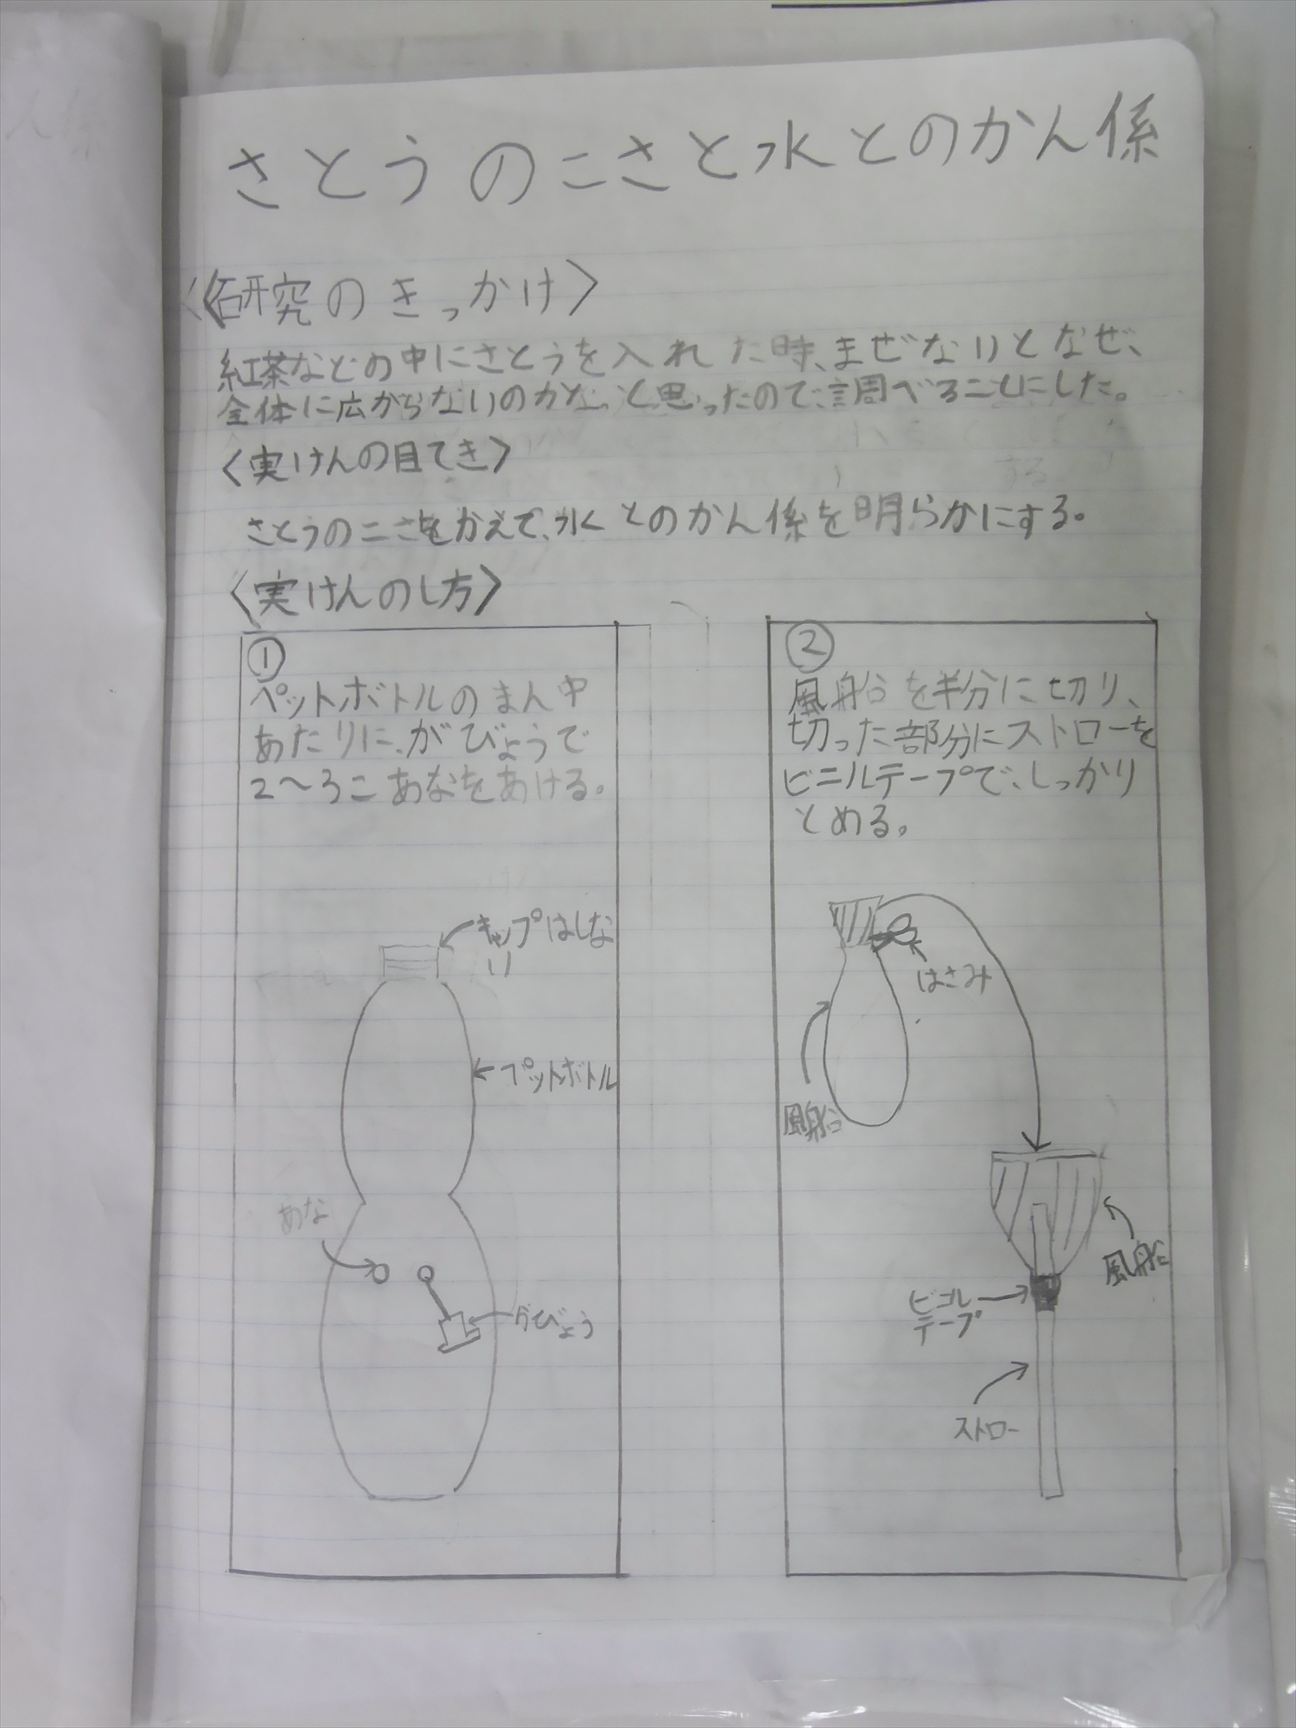 さとうのこさと水とのかん係
〈研究のきっかけ〉
紅茶などの中にさとうを入れた時、まぜないとなぜ、
全体に広がらないのかな。と思ったので、調べることにした。
〈実けんの目てき〉
さとうのこさをかえて、水とのかん係を明らかにする。
〈実けんのし方〉
①
ペットボトルのまん中
あたりに、がびょうで
2〜3こあなをあける。
キャップはしな
い
ペットボトル
あな
がびょう
②
風船を半分に切り、
切った部分にストローを
ビニルテープで、しっかり
とめる。
はさみ
風船
風船
ビニル
テープ
ストロー